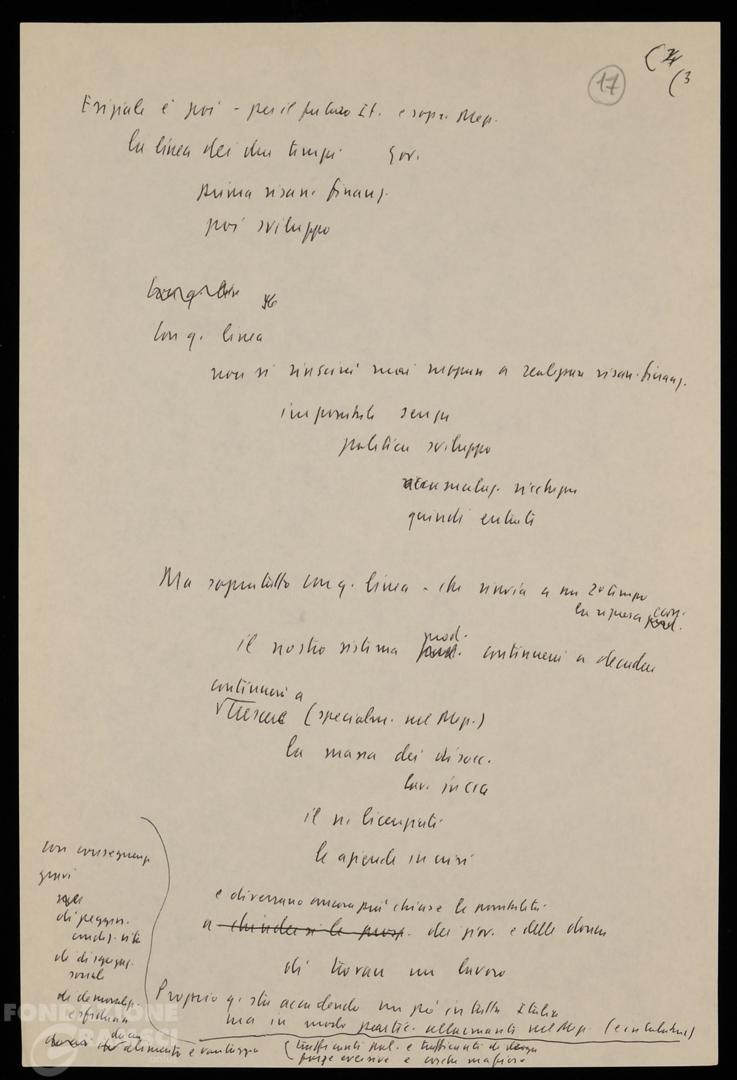 17
(3
Esiziale è poi - per il futuro It. e sopr. Mezz.
la linea dei due tempi Gov.
prima risan. finanz.
poi sviluppo
Con q. linea
non si riuscirà mai neppure a realizzare risan. finanz.
impossibile senza
politica sviluppo
ricchezza
quindi entrate
Ma soprattutto con q. linea - che rinvia a un 2° tempo
la ripresa
il nostro sistema prod. continuerà a decadere
continuerà a
crescere (specialm. nel Mezz.)
la massa dei disocc.
lav. in CIG
il n. licenziati
le aziende in crisi
e diverranno ancora più chiuse le possibilità
a chiudersi le prosp. dei giov. e delle donne
di trovare un lavoro
con conseguenze
gravi
di peggior.
condiz. vita
di disgregaz.
sociale
di demoralizz.
e sfiducia
alimento e vantaggio
Proprio q. sta accadendo un po' in tutta Italia
ma in modo partic. allarmante nel Mezz. (e in Calabria)
trafficanti di droga
forze eversive e cosche mafiose
FONDAZIONE
GRAMSCI